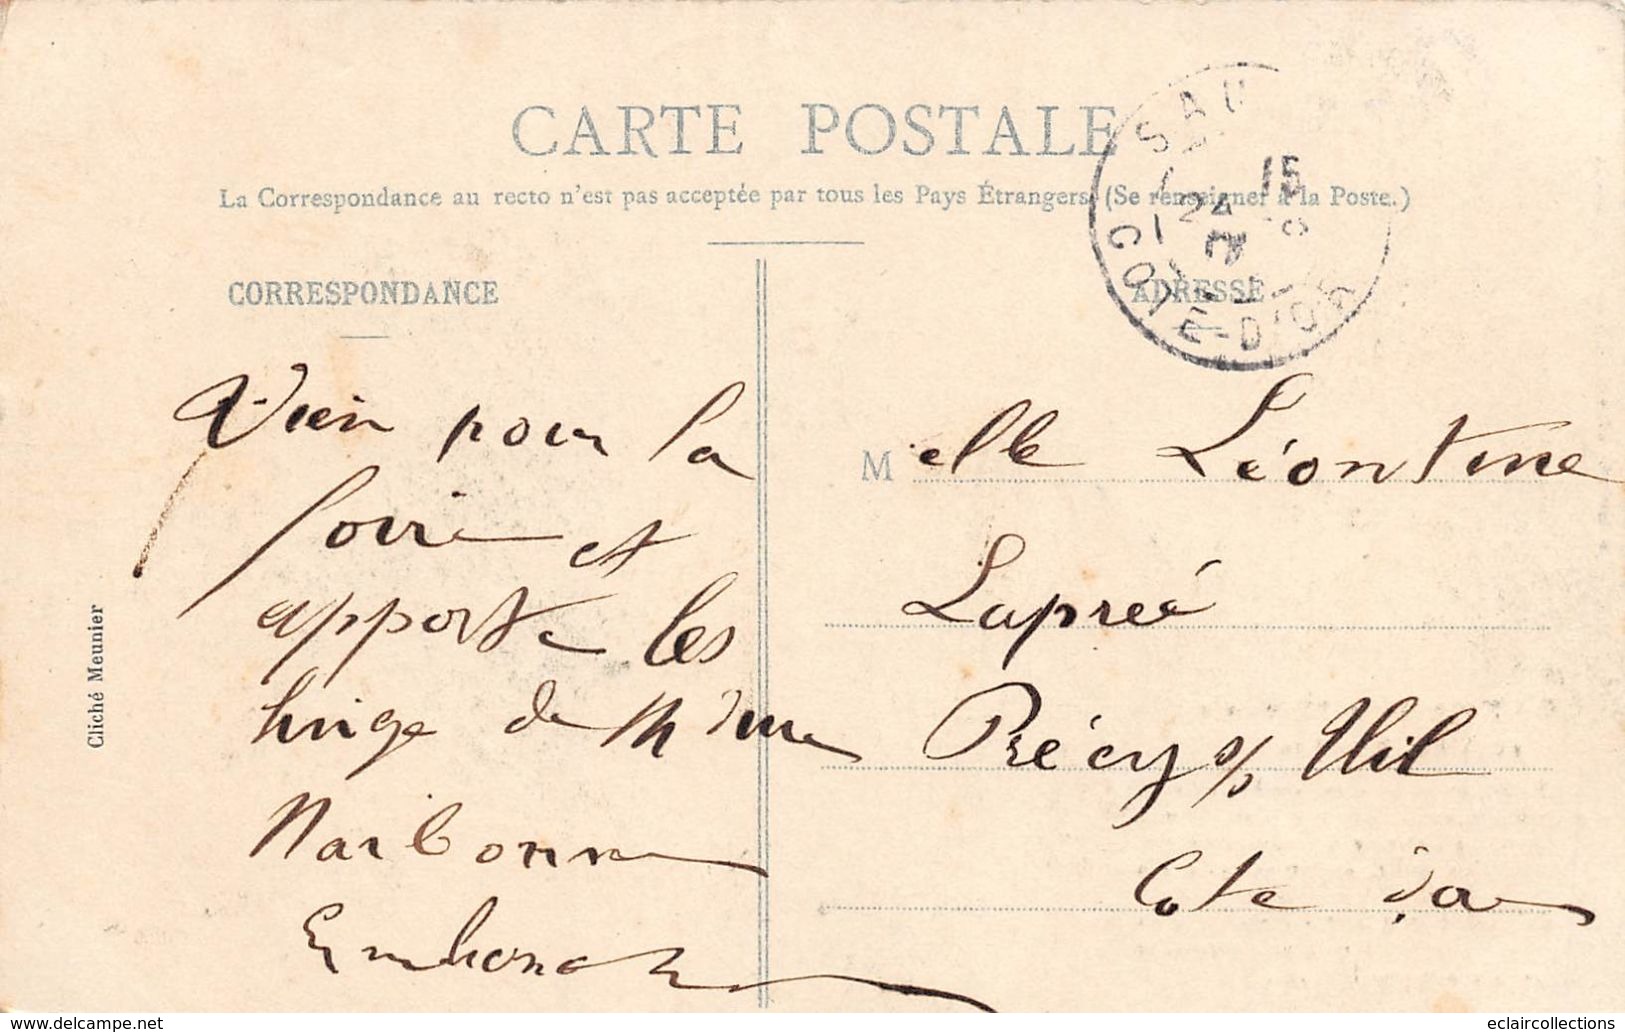 CARTE POSTALE
La Correspondance au recto n'est pas acceptée par tous les Pays Étrangers (Se renseigner à la Poste.)
SAU
15
24
COTE-D'OR
CORRESPONDANCE
Vien pour la
foire et
apporte les
linge de Mme
Narbonne
ADRESSE
Melle Léontine
Lapreé
Précy s/s Thil
Cote d'or
Cliché Meunier
eclaircollections
https://www.delcampe.net/eclaircollections